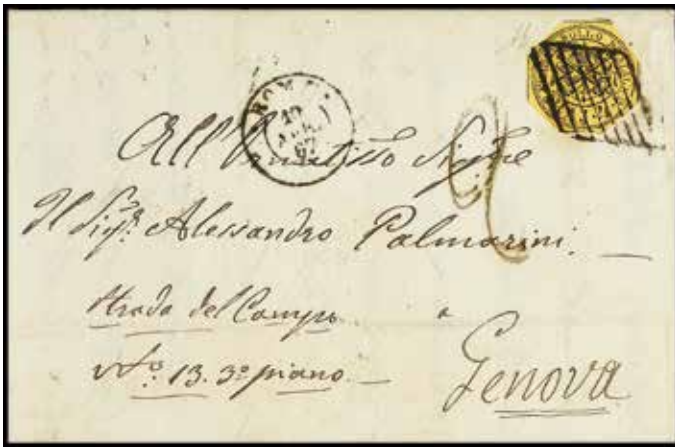 BOLLO
ROMA
67
All' Ornatissº Sigre
Il Sigr. Alessandro Palmarini.
Strada del Campo a
Nº. 13. 3º piano Genova
2